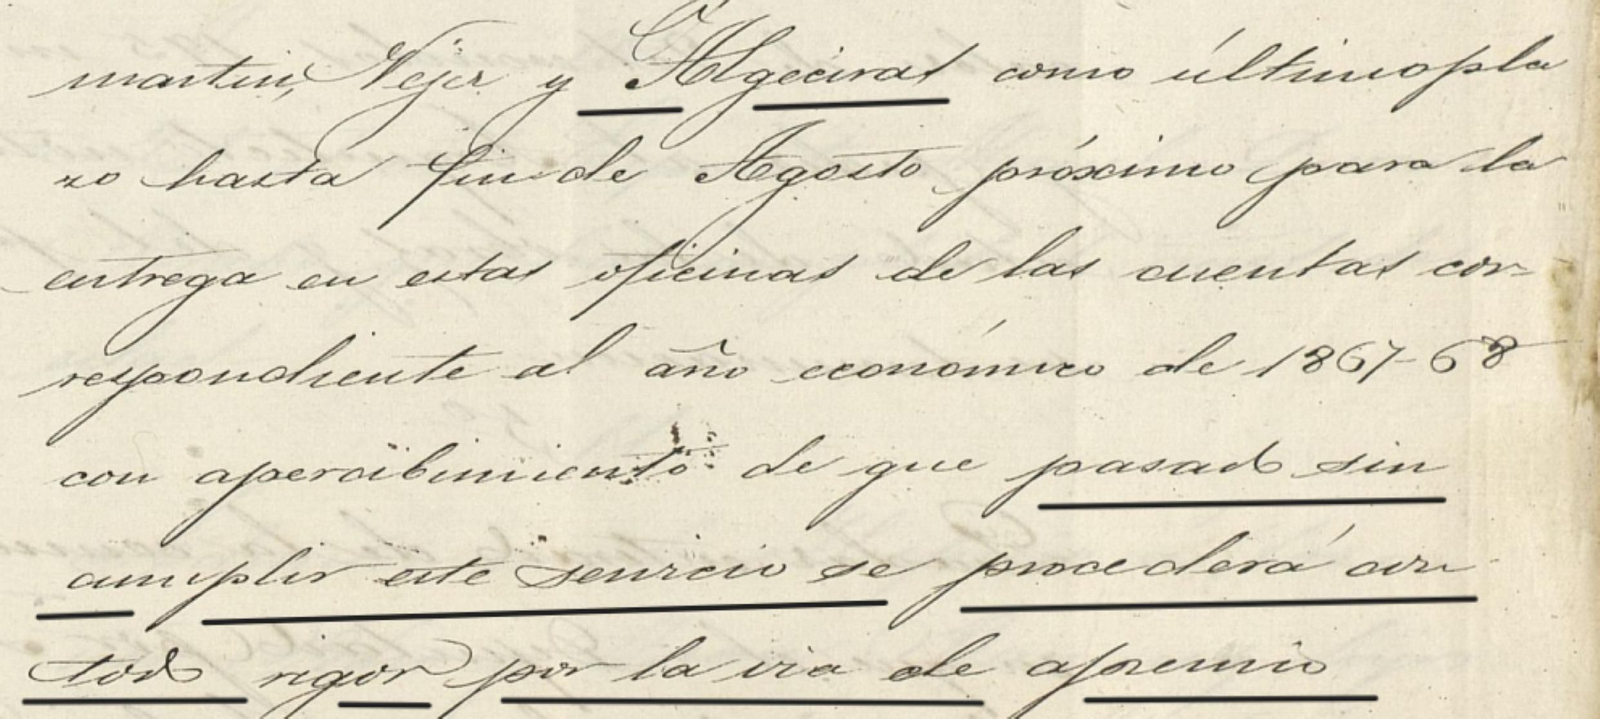 martin, Vejer y Algeciras como último pla
zo hasta fin de Agosto próximo para la
entrega en estas oficinas de las cuentas cor-
respondiente al año económico de 1867-68
con apercibimiento de que pasado sin
cumplir este servicio se procederá con
todo rigor por la via de apremio